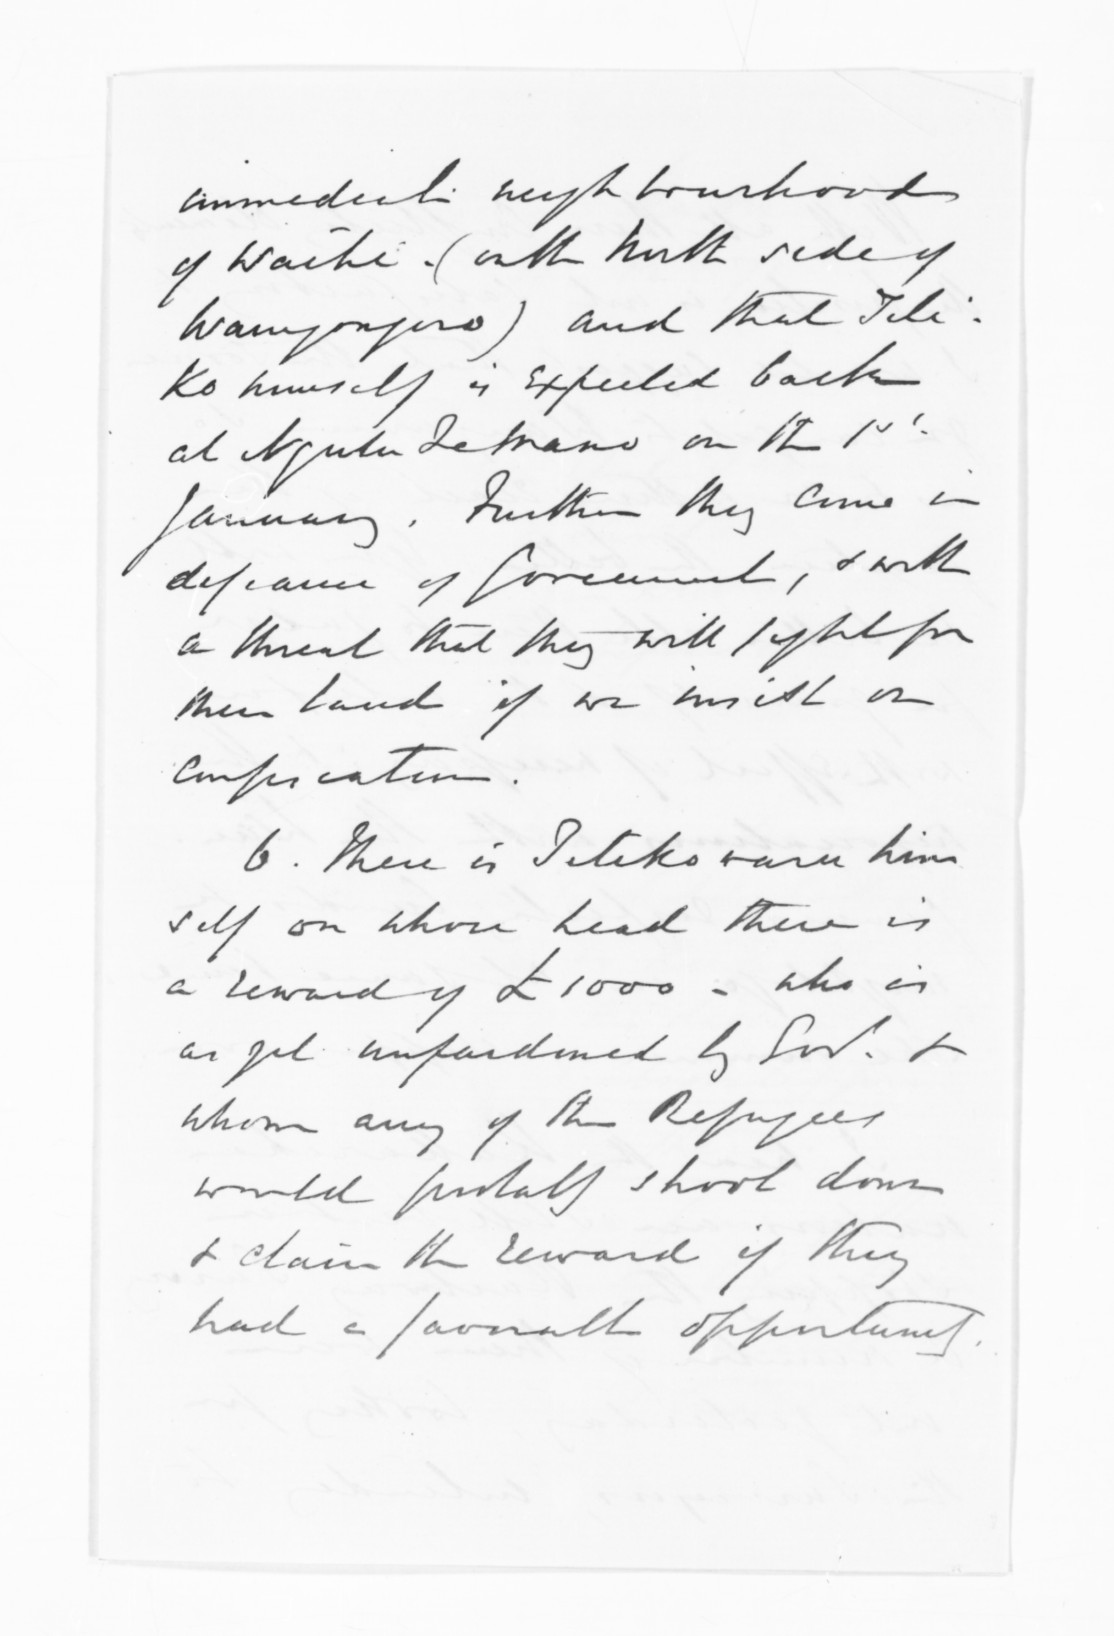 immediate neighbourhood
of Waihi - (on the North side of
Waingongoro) and that Tito-
Ko himself is expected back
at Ngutu Te Manu on the 1st.
January. Further they come in
defiance of Government, & with
a threat that they will fight for
their land if we insist on
confiscation.
6. There is Titokowaru him
self on whose head there is
a reward of £1000 - who is
as yet unpardoned by Govt. &
whom any of the Refugees
would probably shoot down
& claim the reward if they
had a favourable opportunity.